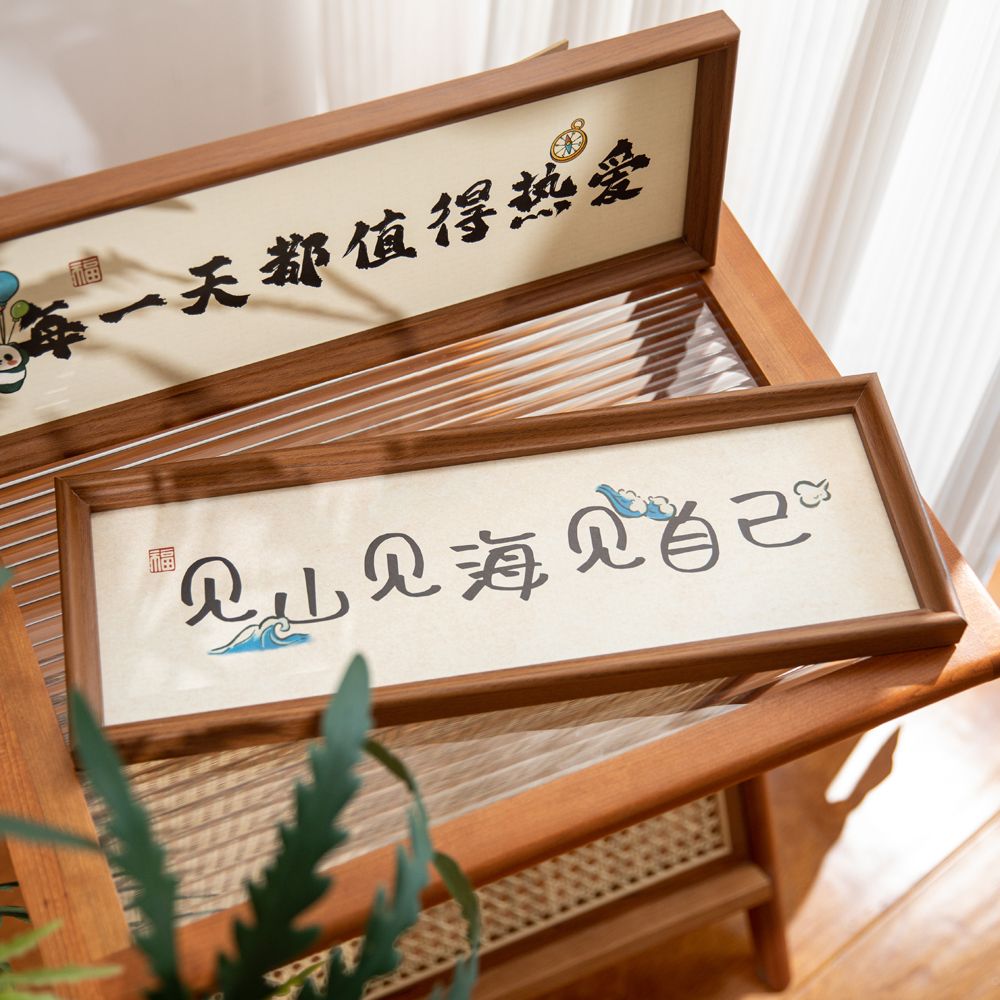 福
每一天都值得热爱
福
见山见海见自己